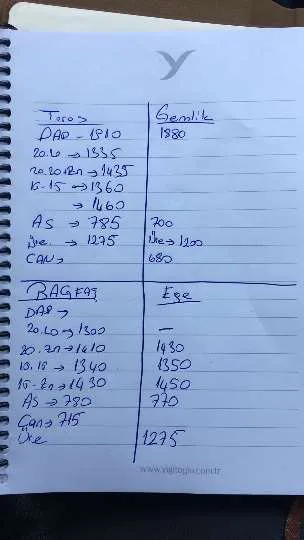 Toros Gemlik
DAP - 1910 1880
20.20 → 1335
20.20+Zn → 1435
15-15 → 1360
→ 1460
AS → 785 700
Üre. → 1275 Üre → 1200
CAN → 680
BAGFAŞ Ege
DAP →
20.20 → 1300 —
20.Zn → 1410 1430
15.15 → 1340 1350
15-Zn → 1430 1450
AS → 780 770
Can → 715
Üre 1275
www.yigitoglu.com.tr